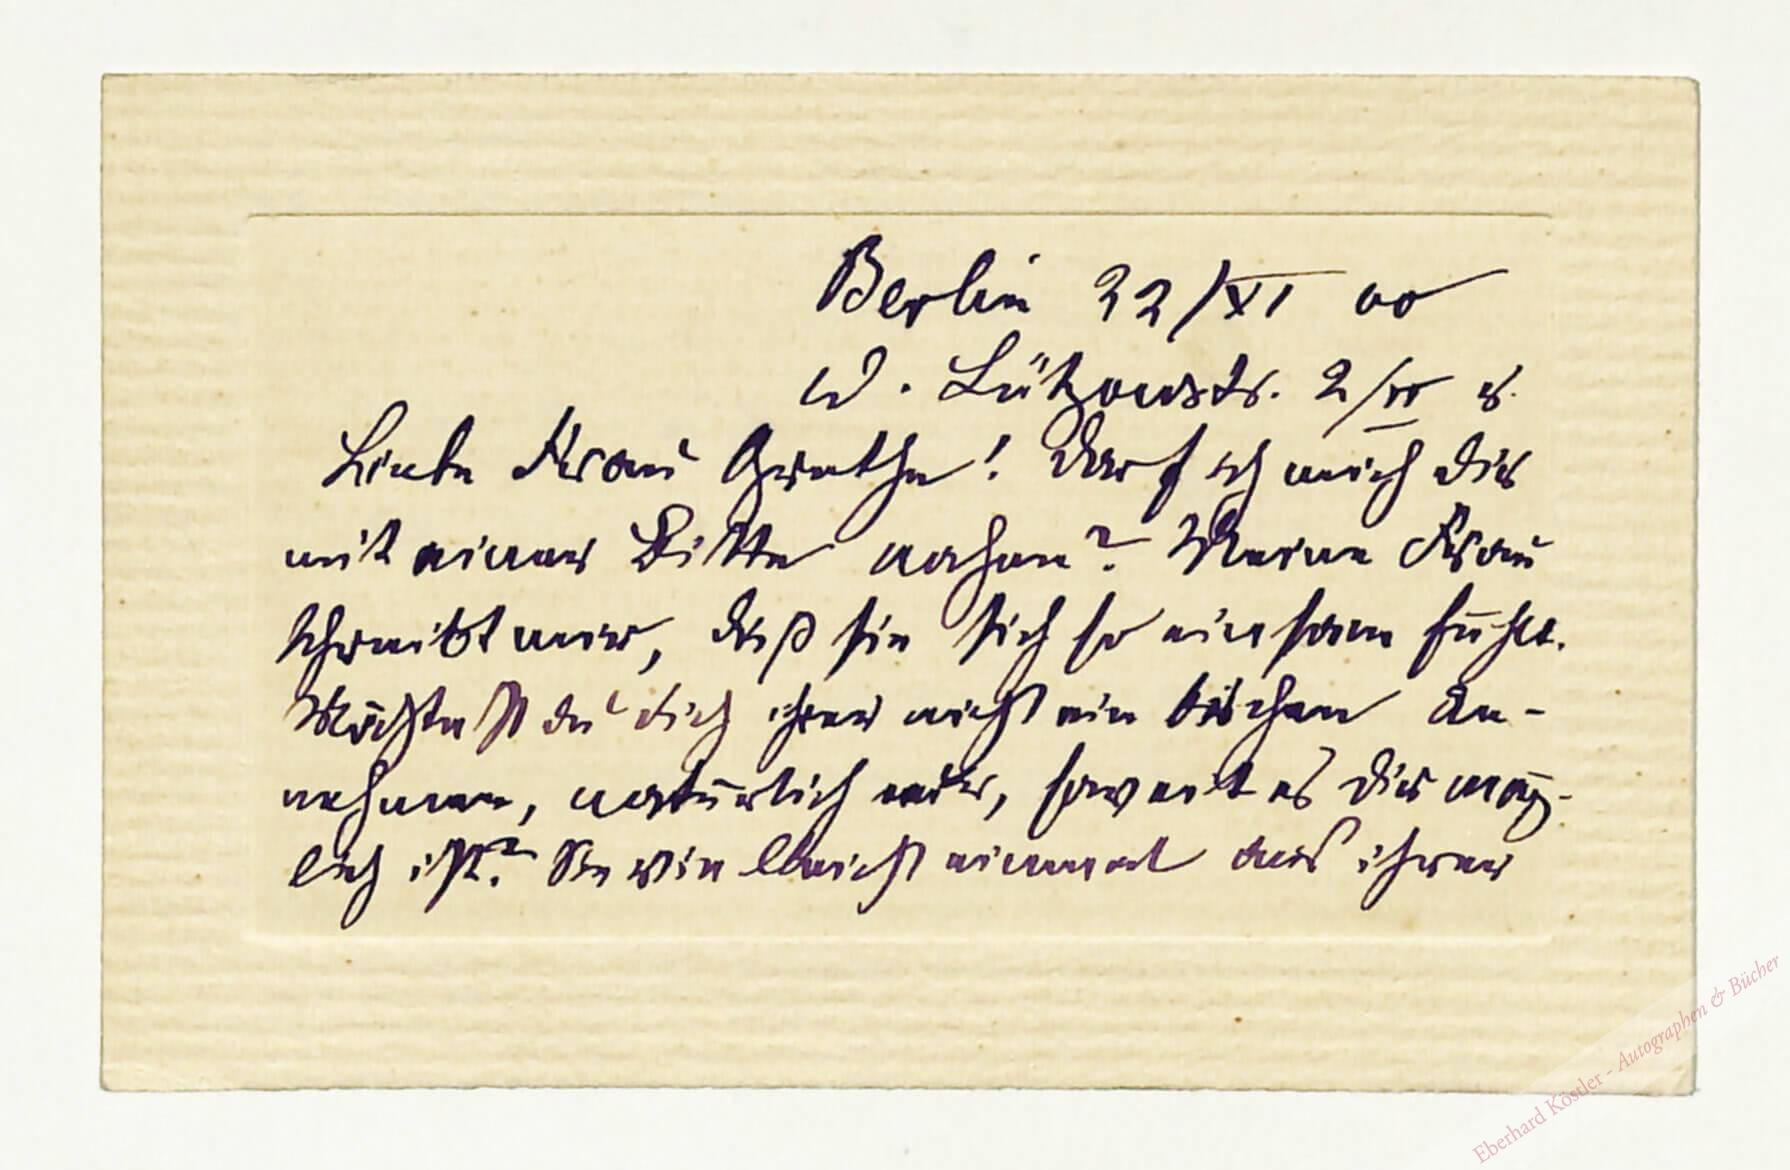 Berlin 22/XI 00
W. Lützowstr. 2/III r.
Liebe Frau Grethe! Darf ich mich dir
mit einer Bitte nahen? Meine Frau
schreibt mir, daß sie sich so einsam fühlt.
Möchtest du dich ihrer nicht ein bischen an-
nehmen, natürlich nur, soweit es dir mög-
lich ist? Sie vielleicht einmal aus ihrer
Eberhard Köstler - Autographen & Bücher